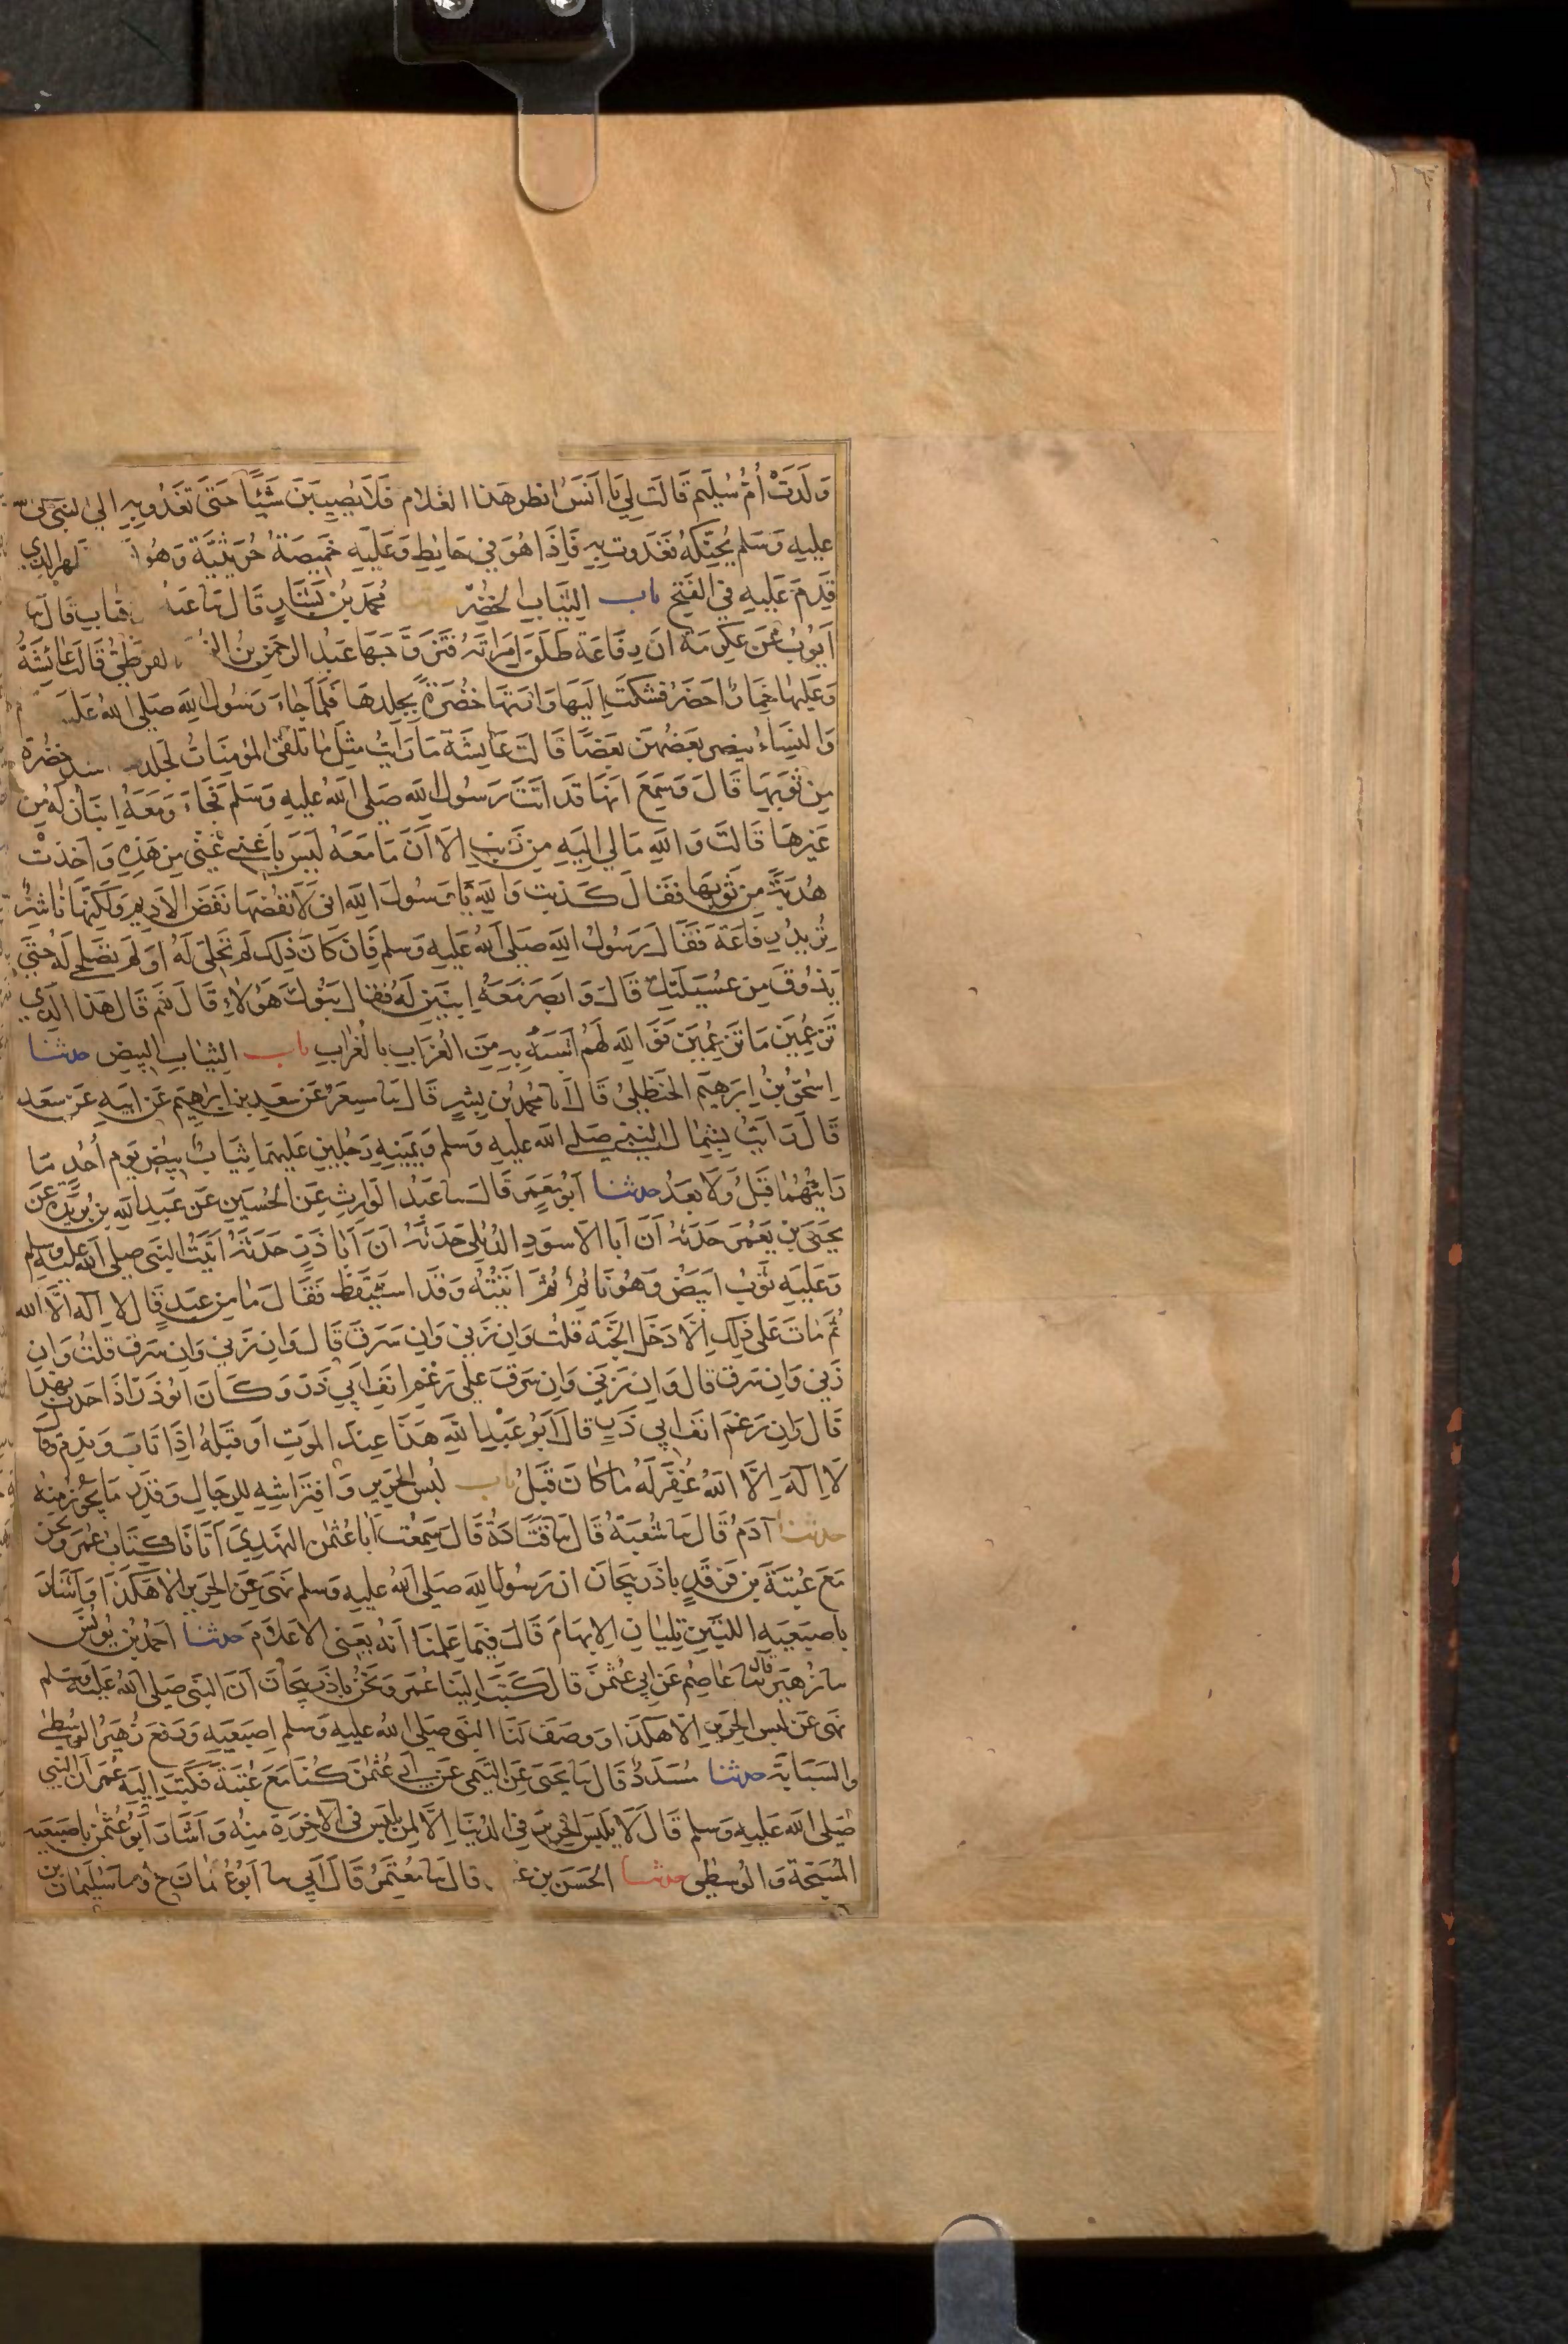 وَلَدَتْ أُمُّ سُلَيْمٍ قَالَتْ لِي يَا أَنَسُ انظر هَذَا الغُلَام فَلَا يُصِيبَنَّ شَيْئًا حَتَّى تَغْدُوَ بِهِ الى النبى صلى الله
عليه وَسَلم يُحَنِّكُهُ فَغَدَوت بِهِ فَإِذَا هُوَ فِي حَائِطٍ وَعَلَيْهِ خَمِيصَةٌ حُرَيْثِيَّة وَهُوَ الظهر الذي
قَدِمَ عَلَيْهِ فِي الفَتْحِ باب الثيَابِ الخُضْرِ مُحَمَّد بْنُ بَشَّارٍ قَالَ ثنا عَبْدُ الوهاب قَالَ ثنا
أَيُّوبُ عَنْ عِكْرِمَة أَنَّ رِفَاعَةَ طَلَّقَ امْرَاتَهُ فَتَزَوَّجَهَا عَبْدُ الرحمن بن الز القرظي قَالَت عَائِشَةُ
وَعَلَيْهَا خِمَارٌ اخضَرُ فَشَكَتْ إِلَيْهَا وَارَتْهَا خُضْرَةً بِجِلْدِهَا فَلَمَّا جَاءَ رَسُولُ اللهِ صَلى الله عَلَيه
وَالنِسَاءُ ينصر بَعْضُهُنَّ بَعْضًا قَالَت عَائِشَة مَا رَأَيْتُ مِثْلَ مَا تَلْقَى المؤمِنَاتُ لجلدها اشد خُضْرَة
مِن ثَوْبِهَا قَالَ وَسَمِعَ انَّهَا قَد أَتَتْ رَسُولَ اللهِ صَلى اللهُ عليه وَسَلم فَجَاءَ وَمَعَهُ ابْنَان لَهُ مِن
غَيْرِهَا قَالَتْ وَاللهِ مَا لي إِلَيْهِ مِن ذَنْبٍ الا أَنَّ مَا مَعَهُ لَيْسَ بِأَغْنَى عَنِّى مِن هَذِهِ وَأَخَذَتْ
هُدْبَةً مِن ثَوْبِهَا فَقَالَ كَذَبت وَاللهِ يَا رَسُولَ الله انى لأَنْفُضُهَا نَفْضَ الادِيم وَلَكِنَّهَا نَاشِزٌ
تُرِيدُ رِفَاعَةَ فَقَالَ رَسُولُ اللهِ صَلى اللهُ عَلَيهِ وَسلم فَإِن كَانَ ذَلِك لَم تَحِلِّى لَهُ او لَم تصلحى لَهُ حتى
يَذُوقَ مِن عُسَيْلَتِكِ قَالَ وَابصَرَ مَعَهُ ابْنَيْنِ لَهُ فقال بَنُوكَ هَؤُلَاءِ قَالَ نعم قَالَ هَذَا الذي
تَزْعُمِينَ مَا تَزْعُمِينَ فَوَاللهِ لَهُم أَشْبَهُ بِهِ مِنَ الغُرَابِ بِالغُرَابِ باب الثيَابِ البِيض حدثنا
إِسْحَقُ بْنُ إِبرَهِيْم الحَنْظَلِىُّ قَالَ انا مُحَمَّدُ بْن بِشرٍ قَالَ ثنا مِسعَرٌ عَنْ سَعدِ بنِ إِبْرَاهِيمَ عَن أَبِيهِ عَن سَعد
قَالَ رَأيتُ بِشِمَال النَّبِيِّ صَلى الله عَلَيهِ وَسلم وَيَمِينهِ رَجُلَين عَلَيهِمَا ثِيَابٌ بِيْضٌ يَوم أُحُدٍ مَا
رَايتُهُمَا قَبْلُ وَلَا بَعدُ حدثنا أَبُو مَعْمَرٍ قَالَ ثنا عَبْدُ الوَارِثِ عَن الحُسَينِ عَن عَبدِ الله بن بُرَيْدَة عن
يَحيَى بن يَعْمُرَ حَدثهُ أَنَّ أَبَا الاسوَدِ الدُّئَلِي حَدثهُ انَّ أَبَا ذَرٍّ حَدَّثَهُ أَتَيْتُ النَّبى صلى الله عليه وسلم
وَعَلَيهِ ثَوبٌ ابيَضُ وَهُوَ نَائِمٌ ثُمَّ اتيْتُهُ وَقَد استَيْقَظَ فَقَالَ مَا مِن عَبدٍ قَالَ لا إِلَهَ الَّا الله
ثُمَّ مَاتَ عَلَى ذَلِكَ إِلَّا دَخَلَ الجَنَّة قُلتُ وَانْ زَنى وَانْ سَرَقَ قَالَ وَان زَنى وَانْ سَرَق قلتُ وَان
زَنى وَان سَرَق قال وَان زَنى وَان سَرقَ عَلى رَغم انف ابي ذَرّ وَكَانَ ابُو ذَرّ اذَا حَدث بهذا
قَال وَان رَغم انف ابي ذَرٍ قَالَ أَبُو عَبْدِ اللهِ هَذَا عِندَ المَوتِ او قَبْلهُ إِذَا تَابَ وَنَدِمَ وقال
لَا إِلَهَ إِلَّا اللهُ غُفِرَ لَهُ مَا كَانَ قَبْلُ باب لُبْس الحَرِيرِ وَافْتِرَاشِهِ للرجَالِ وَقَدْر مَا يَجُوز مِنه
حدثنا آدَمُ قَالَ ثنا شُعْبَةُ قَالَ ثنا قَتَادَةُ قَالَ سَمِعتُ أَبَا عُثْمَن النَّهْدِيَّ أَتَانَا كِتَابُ عُمَر ونحن
مَعَ عُتْبَةَ بن فَرقَدٍ بِاذَربِيجَانَ ان رَسُولَ الله صَلى اللهُ عليهِ وَسلم نَهَى عَن الحَرِير الا هَكَذَا وَأشَارَ
بِاصبَعَيهِ اللتَيْنِ تَلِيَانِ الابهَامَ قَالَ فِيمَا عَلِمْنَا أَنَّهُ يَعْنِي الاعلَامَ حدثنا احمَدُ بْن يُونُسَ
ثنا زُهَيْر قال ثنا عَاصِم عَن ابي عُثْمَنَ قَالَ كَتَبَ إِلَينَا عُمَر وَنَحْنُ بِاذَربِيجَانَ أَنَّ النبى صَلى اللهُ عَلَيهِ وَسَلم
نَهَى عَن لُبس الحَرِير إِلَّا هكَذَا وَوَصَفَ لَنَا النبى صَلى الله عليه وَسلم إِصبَعَيهِ وَرَفَعَ زُهَيرٌ الوُسْطَى
وَالسَّبَابَة حدثنا مُسَدَّدٌ قَالَ ثنا يَحيَى عَنِ التَّيْمِى عَن أَبِي عُثْمَنَ كُنَّا مَعَ عُتْبَة فَكَتَبَ إِلَيْهِ عُمَر أن النبى
صَلى الله عَلَيهِ وَسلم قَالَ لَا يُلْبَس الحَرِير فِي الدُّنْيَا إِلَّا لَمن يَلبَس فِى الآخِرَة مِنهُ وَأَشَارَ أَبُو عُثْمَن بِاصبَعَيه
المُسَبّحَة وَالوُسطَى حدثنا الحَسَنُ بن عُ قَالَ ثنا مُعْتَمِرٌ قَالَ أَبِي ثنا أَبُو عُثمَان ح وثنا سُلَيمَانُ بن